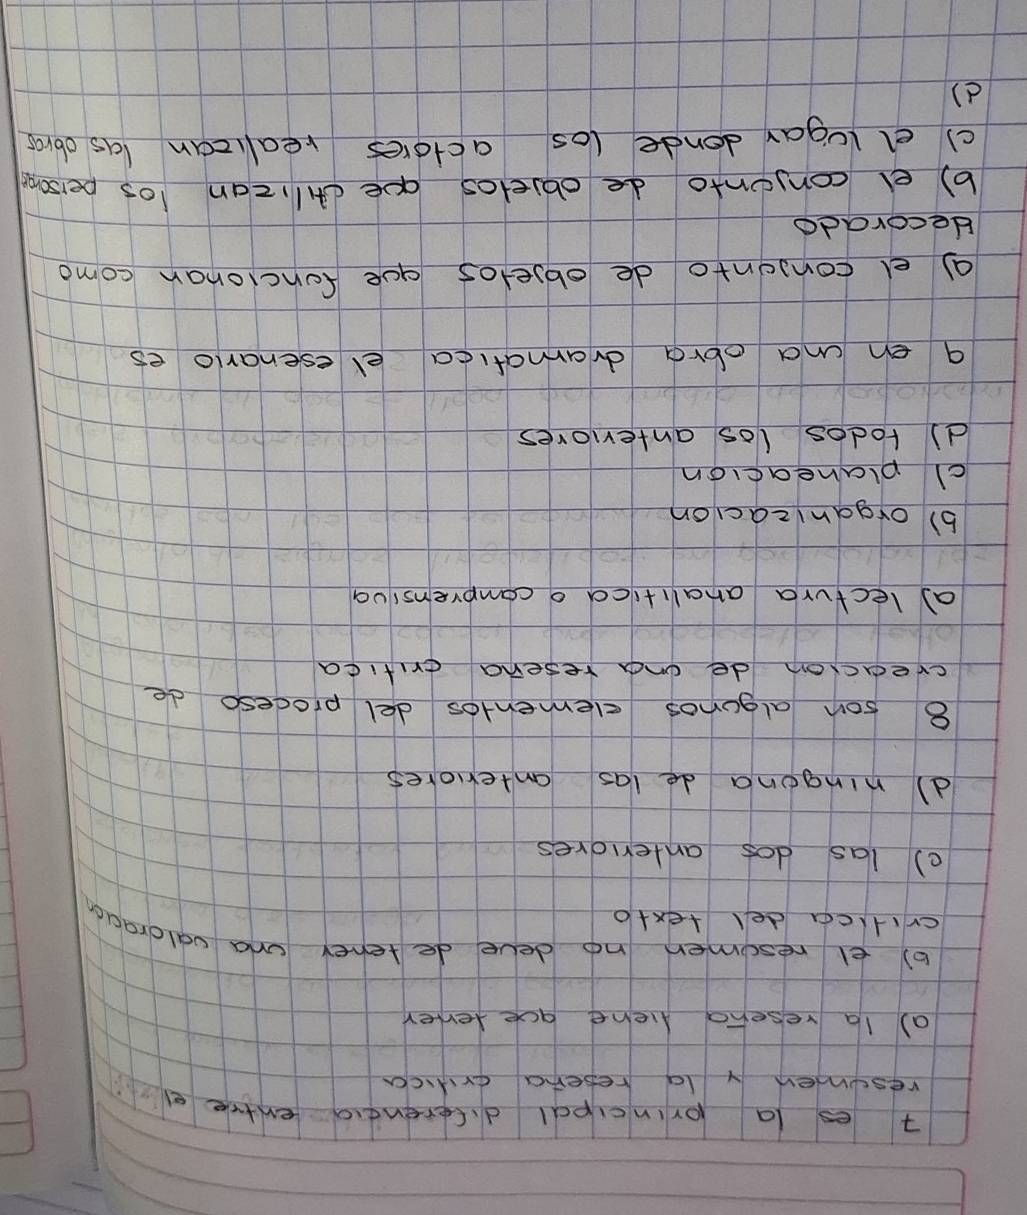 7 es la principal diferencia entre el
resumen y la reseña critica
a) la reseña tiene que tener
b) el resumen no deve de tener una valoracion
critica del texto
c) las dos anteriores
d) ninguna de las anteriores
8 son algunos elementos del proceso de
creacion de una reseña critica
a) lectura analitica o comprensiva
b) organizacion
c) planeacion
d) todos los anteriores
9 en una obra dramatica el esenario es
a) el conjunto de objetos que funcionan como
decorado
b) el conjunto de objetos que utilizan los
c) el lugar donde los actores realizan las obras
d)